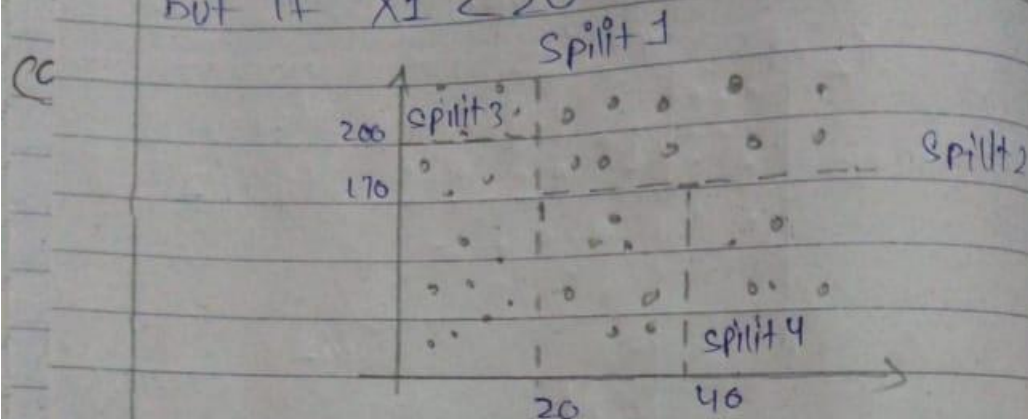 but if x1 < 20
Spilit 1
(c
spilit 3
200
Spilit 2
170
spilit 4
20
40